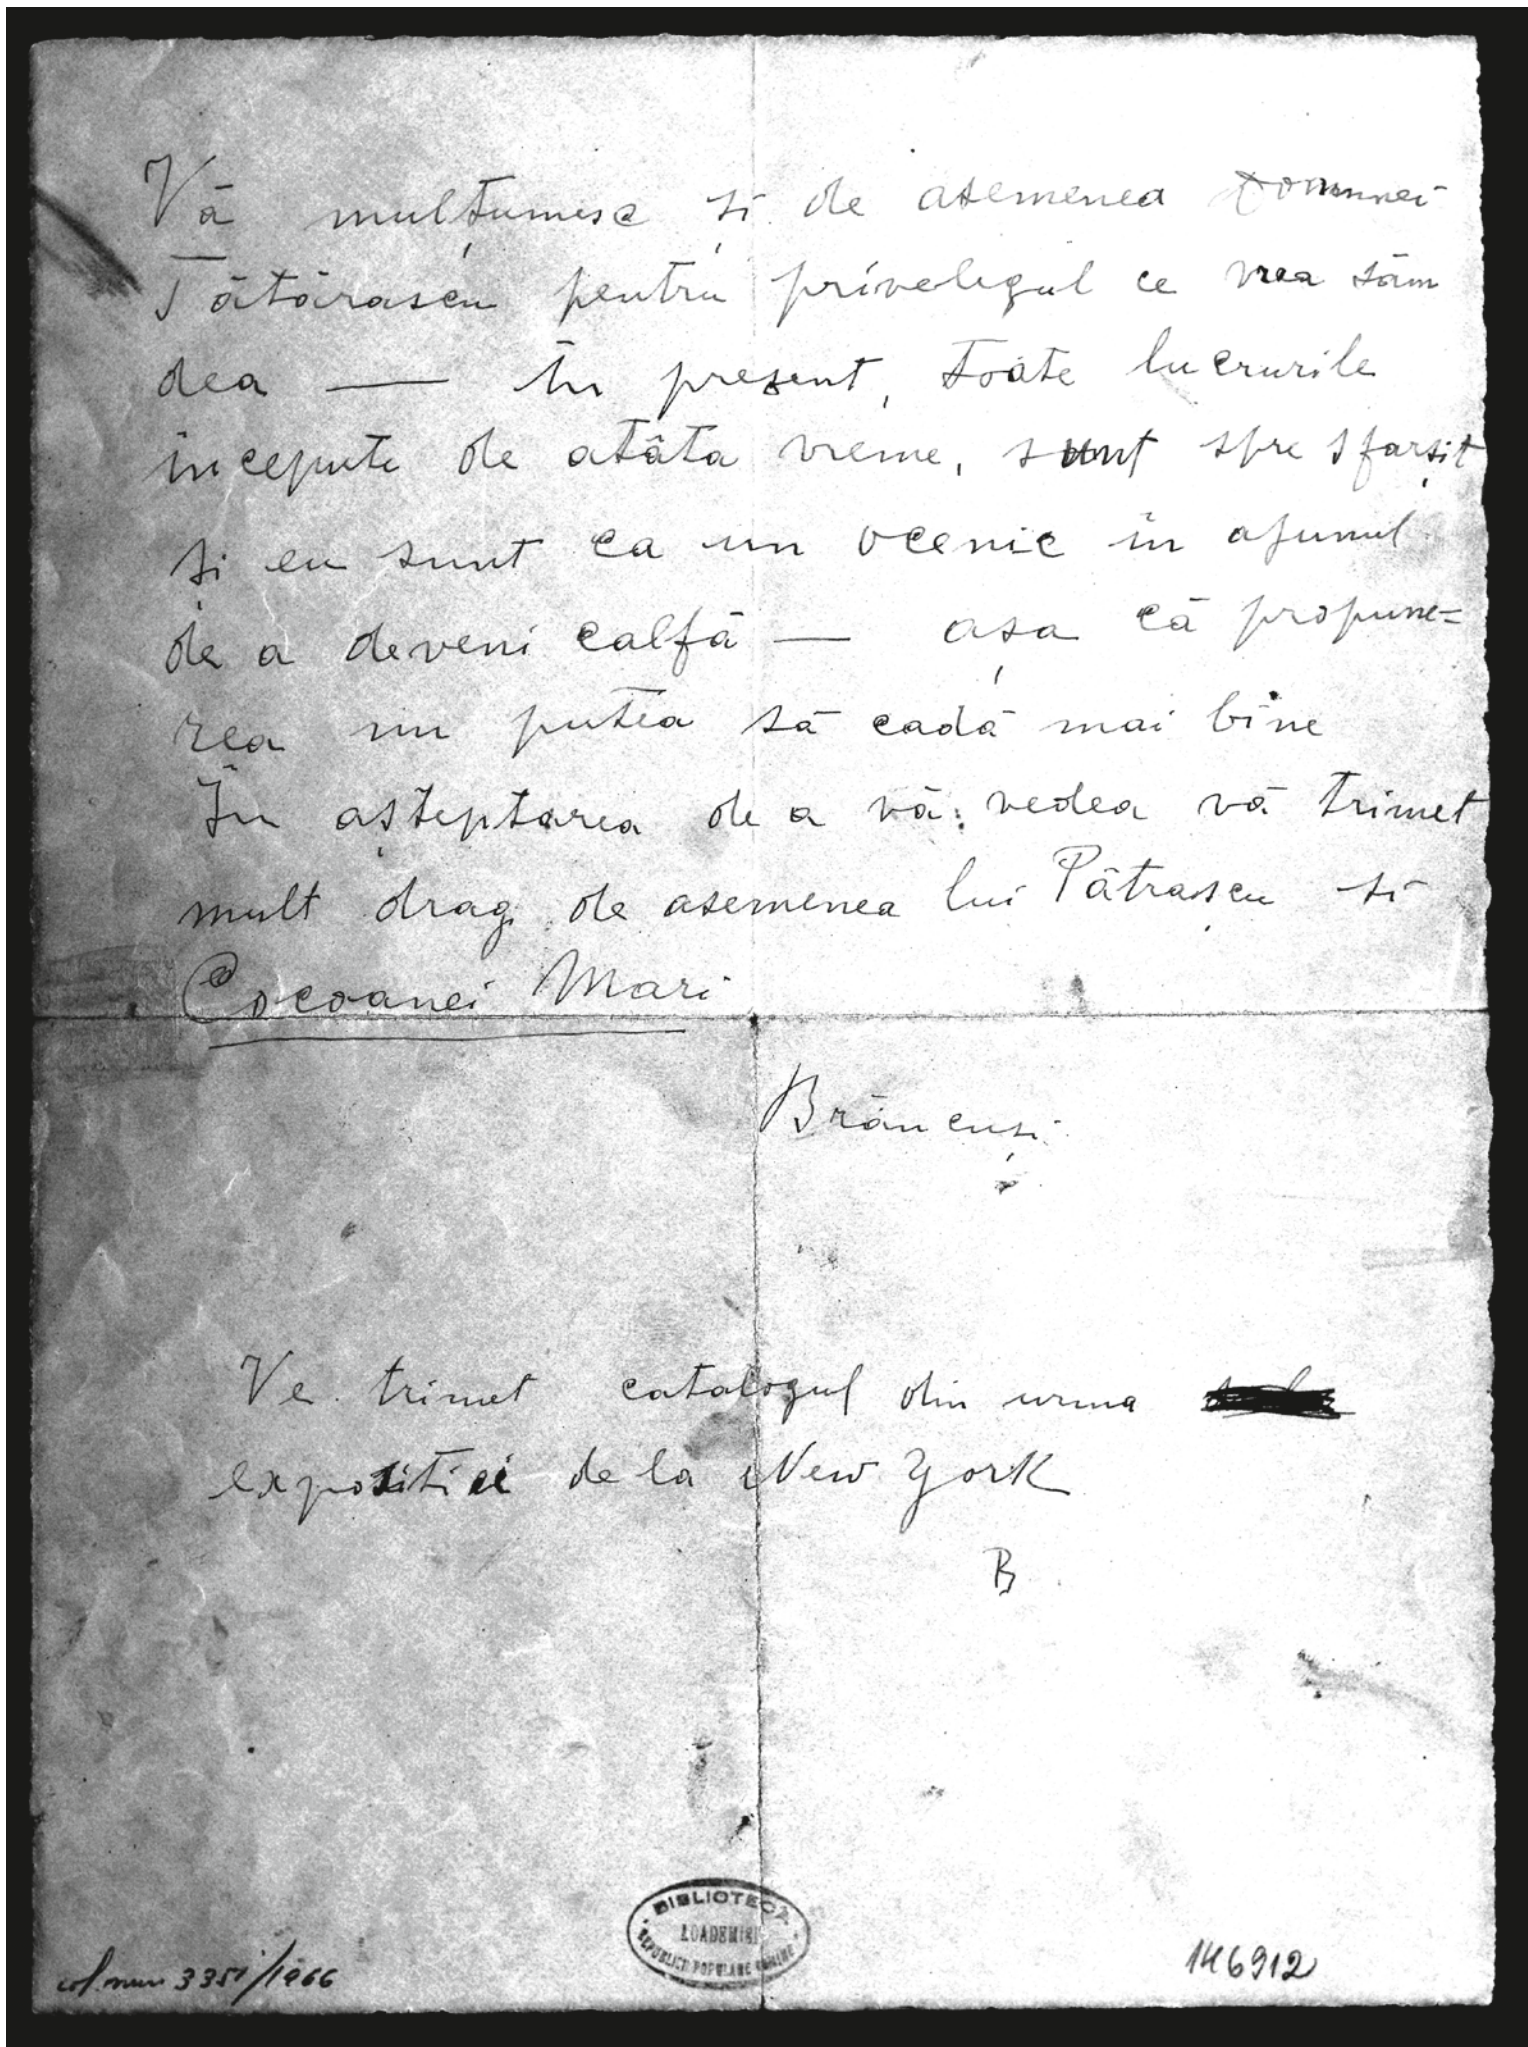 Vă mulțumesc și de asemenea Domnei
Tătărascu pentru privelegul ce vrea săm
dea — În prezent, toate lucrurile
începute de atâta vreme, sunt spre sfarșit
și eu sunt ca un ocenic în ajunul
de a deveni calfă — așa că propune=
rea nu putea să cadă mai bine
În așteptarea de a vă vedea vă trimet
mult drag de asemenea lui Pătrașcu si
Cocoanei Mari
Brâncuși
Ve trimet catalogul din urma
expozitiei de la New York
B
BIBLIOTECA
ACADEMIEI
REPUBLICII POPULARE ROMÎNE
3351/1966
146912